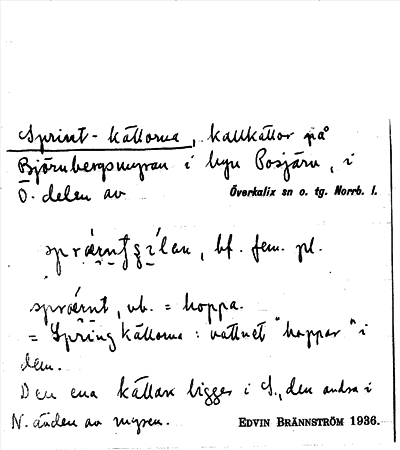 Sprint-källorna, kallkällor på
Björnbergsmyran i byn Posjärv, i
Ö. delen av Överkalix sn o. tg. Norrb. l.
bf. fem. pl.
vb. = hoppa.
= Springkällorna: vattnet "hoppar" i
dem.
Den ena källan ligger i S., den andra i
N. änden av myren. EDVIN BRÄNNSTRÖM 1936.